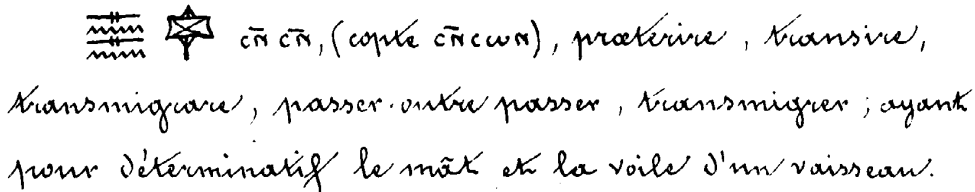 𓋴𓈖𓋴𓈖 𓊡 ⲥⲛ̄ ⲥⲛ̄, (copte ⲥⲛ̄ⲥⲱⲛ), præterire, transire,
transmigrare, passer outre passer, transmigrer ; ayant
pour déterminatif le mât et la voile d'un vaisseau.